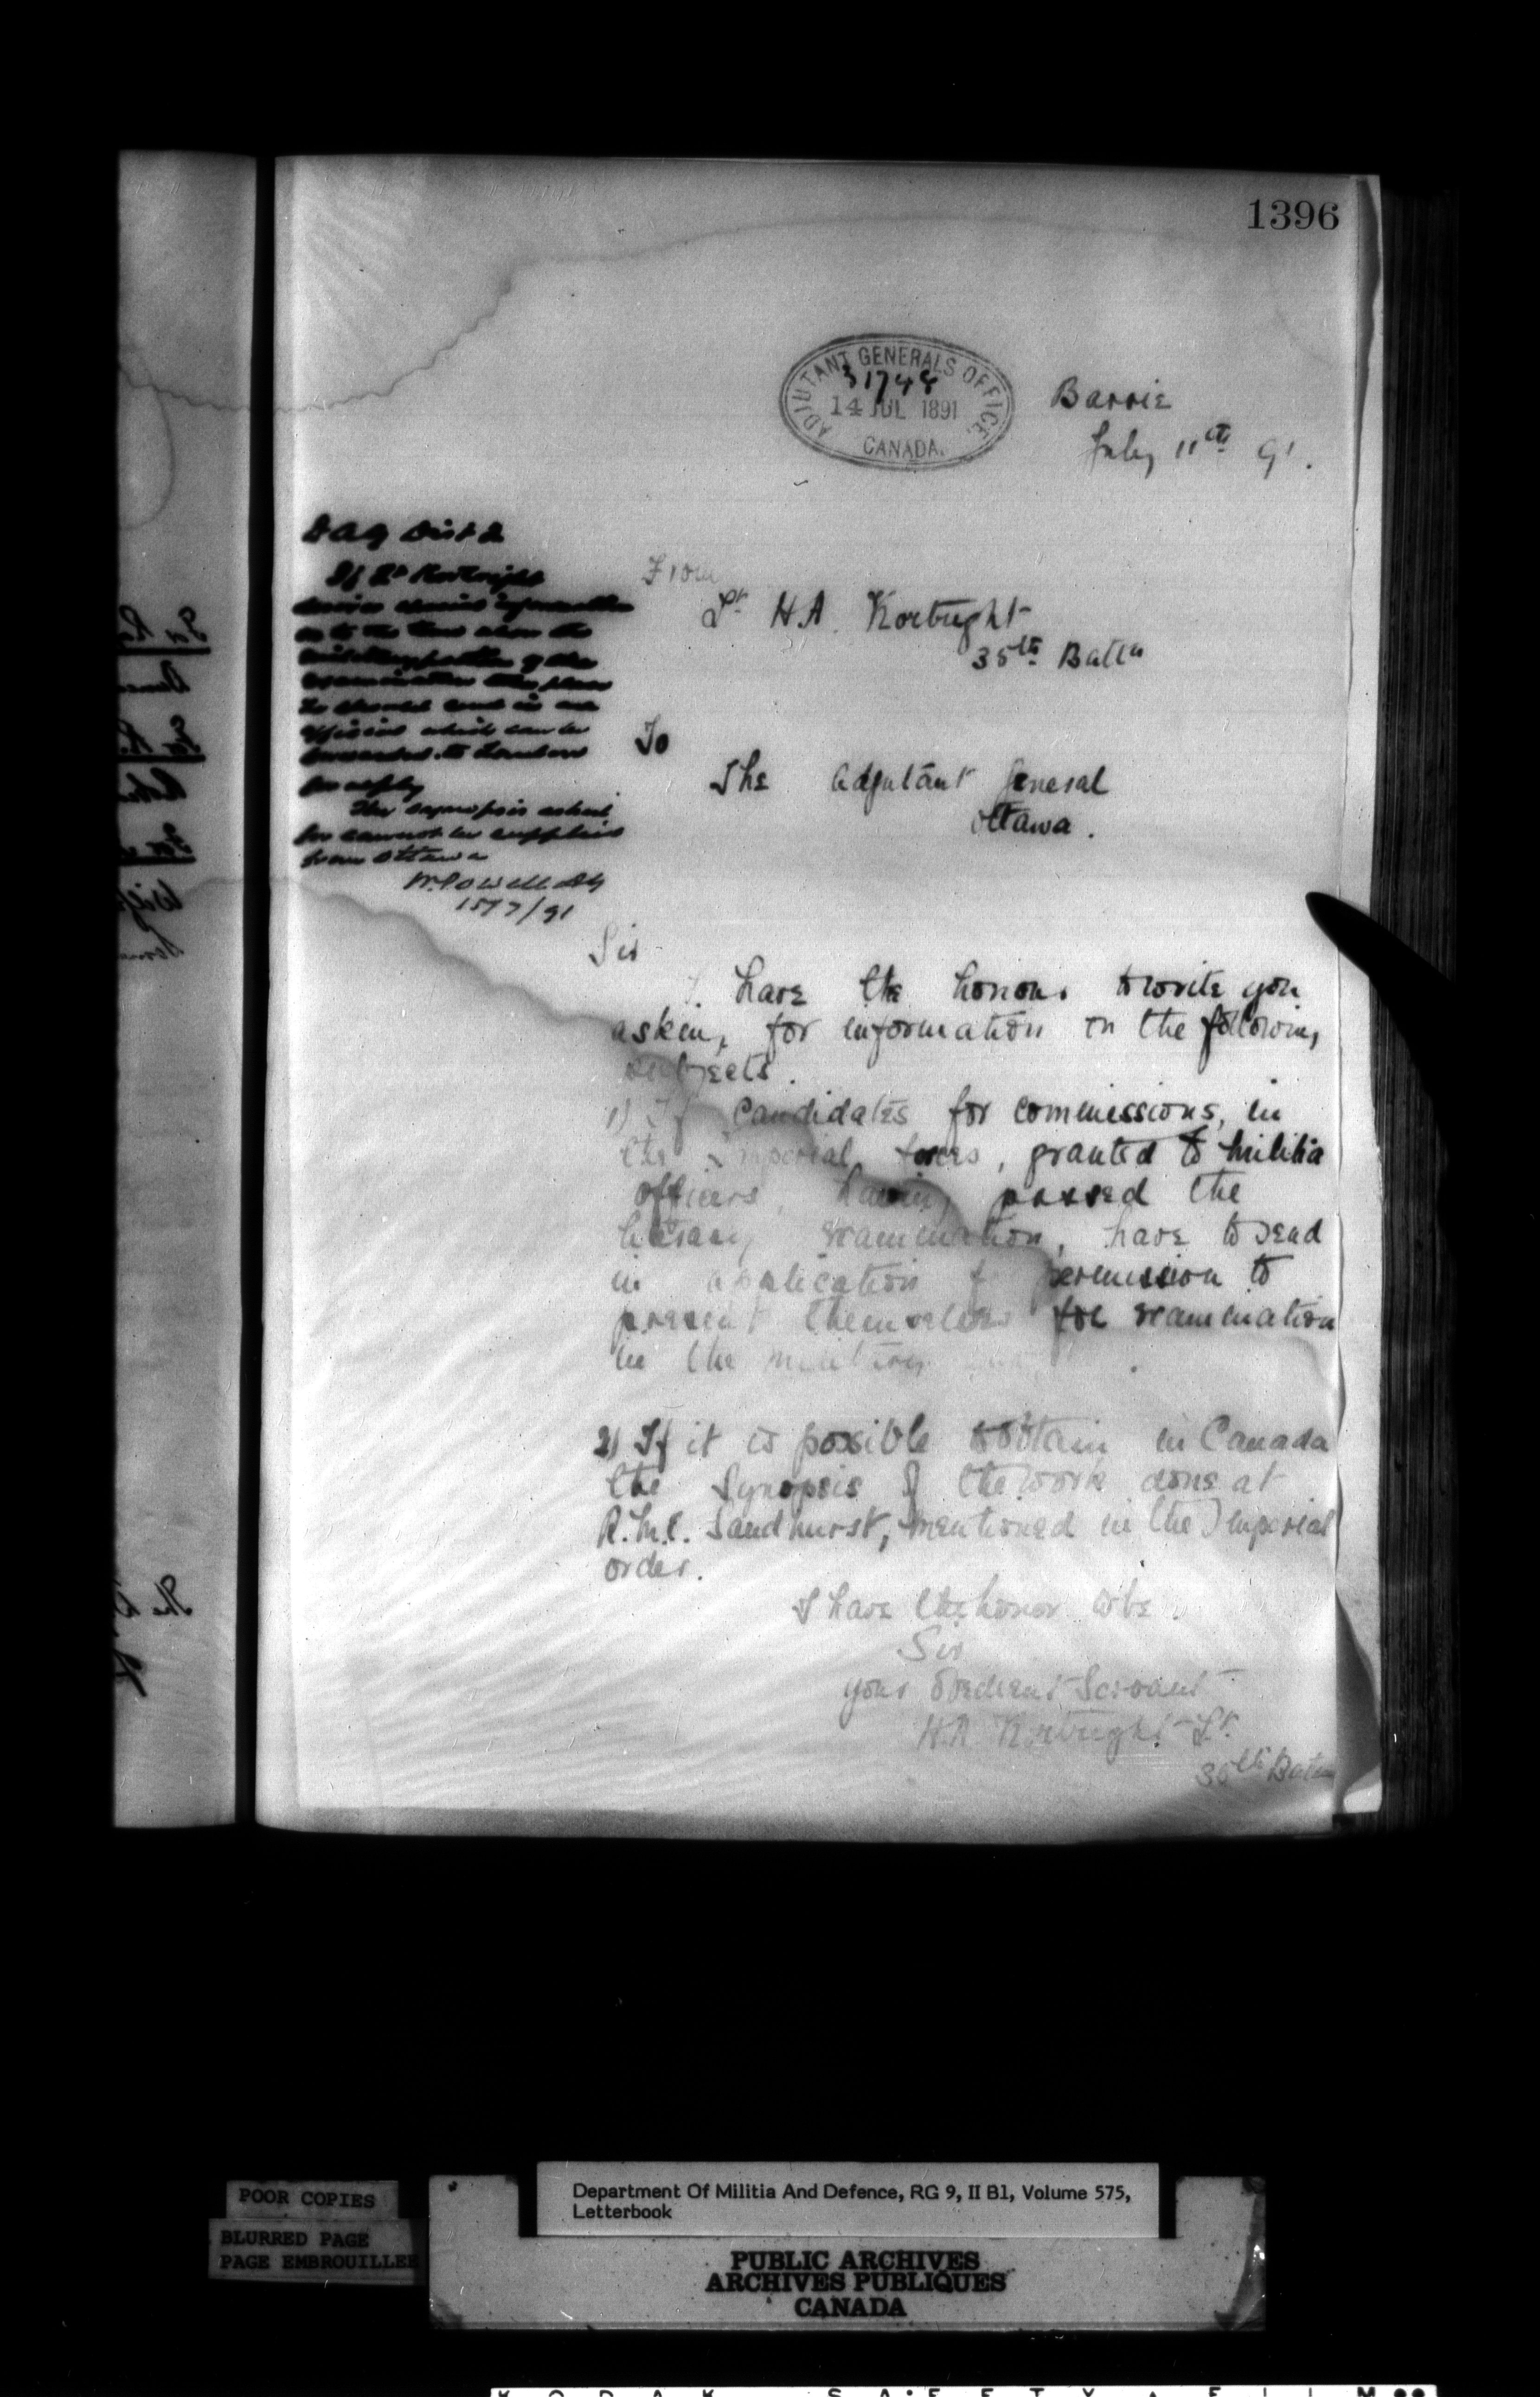 1396
ADJUTANT GENERALS OFFICE
31748
14 JUL 1891
CANADA.
Barrie
July 11th 91.
DAG Dist 2
If Lt Kortright
desires special information
as to the time when the
military portion of the
examination takes place
he should send in an
official which can be
forwarded to London
for reply
The synopsis asked
for cannot be supplied
from Ottawa
W. Powell AG
15/7/91
From
Lt H.A. Kortright
35th Battn
To
The Adjutant General
Ottawa.
Sir
I have the honour to write you
asking for information on the following
subjects.
1) If Candidates for commissions, in
the Imperial forces, granted to Militia
officers, having passed the
literary examination, have to send
in application for permission to
present themselves for examination
in the military
2) If it is possible to obtain in Canada
the Synopsis of the work done at
R.M.C. Sandhurst, mentioned in the Imperial
order.
I have the honor to be
Sir
your obedient Servant
H.A. Kortright Lt.
35th Battn
POOR COPIES
BLURRED PAGE
PAGE EMBROUILLEE
Department Of Militia And Defence, RG 9, II B1, Volume 575,
Letterbook
PUBLIC ARCHIVES
ARCHIVES PUBLIQUES
CANADA